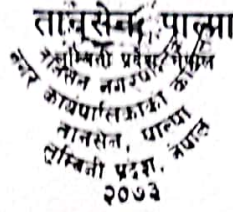 तानसेन, पाल्पा
लुम्बिनी प्रदेश, नेपाल
तानसेन नगरपा
नगर कार्यपालिकाको का
तानसेन, पाल्पा
लुम्बिनी प्रदेश, नेपाल
२०७३